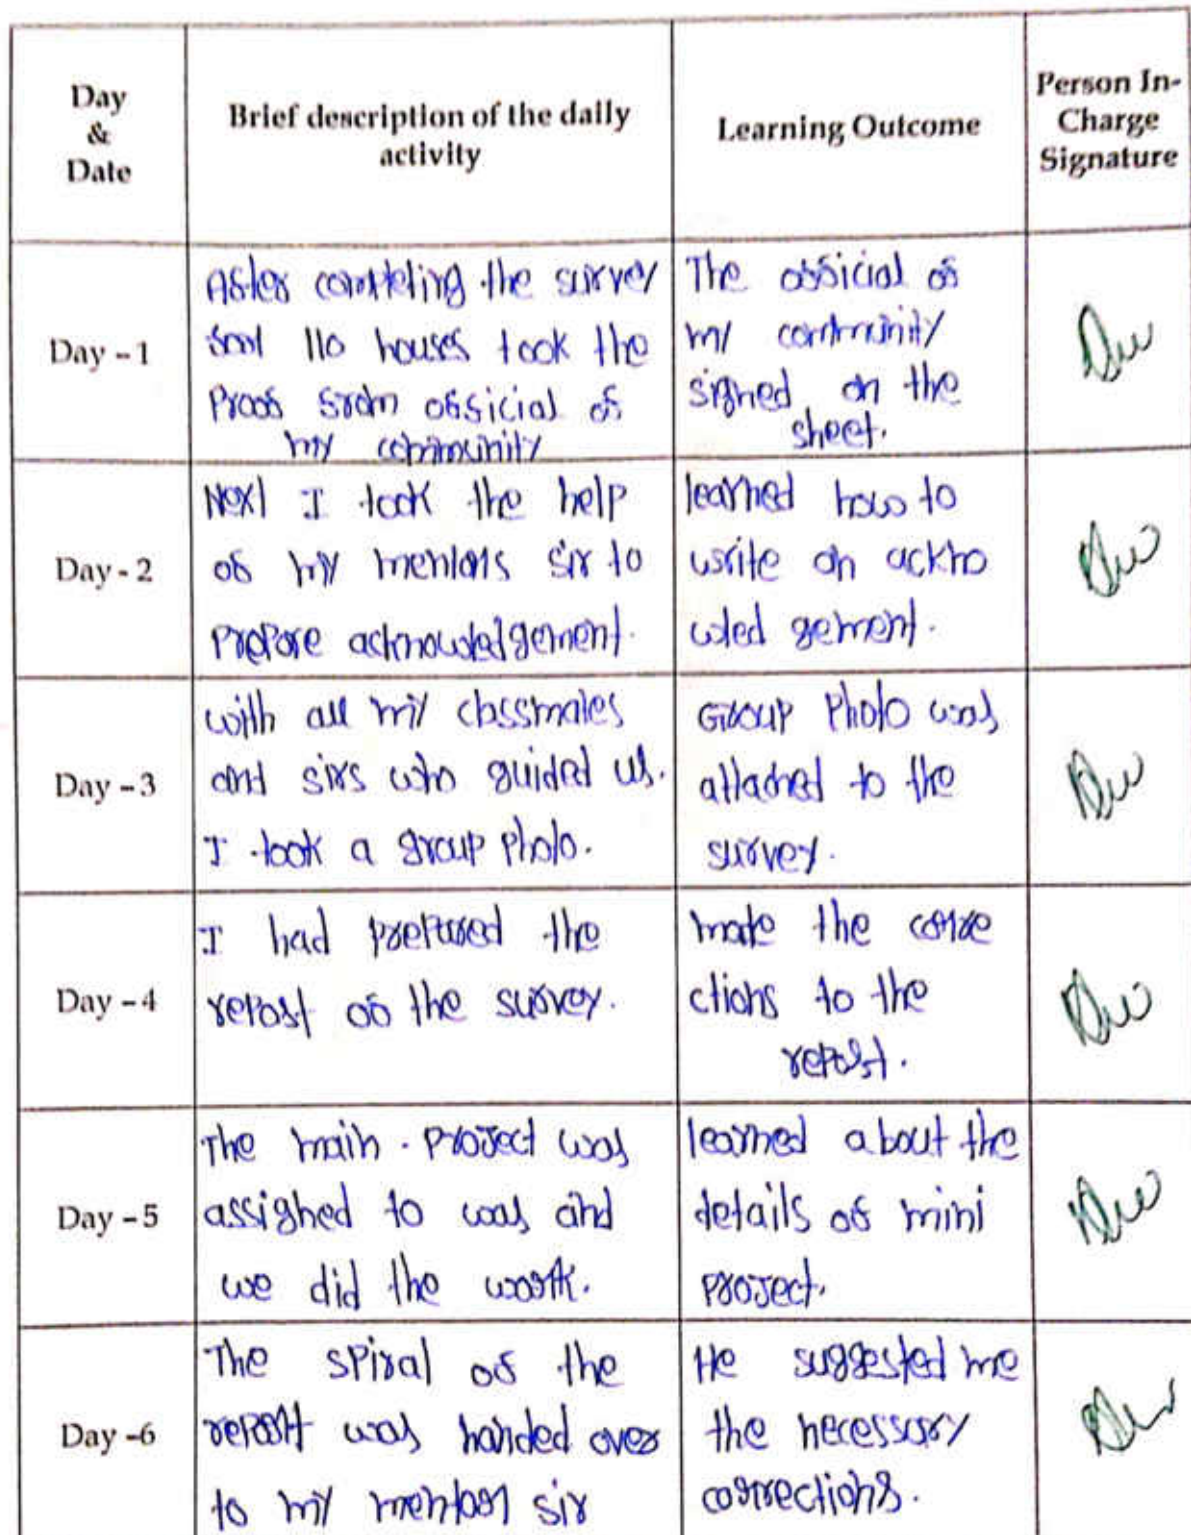 Day
&
Date
Brief description of the daily
activity
Learning Outcome
Person In-
Charge
Signature
Day - 1
After completing the survey
110 houses took the
Proof from official of
my community
The official of
my community
signed on the
sheet.
Day - 2
Next I took the help
of my mentors sir to
prepare acknowledgement.
learned how to
write an ackno
wled gement.
Day - 3
with all my classmates
and sirs who guided us.
I took a group photo.
Group Photo was
attached to the
survey.
Day - 4
I had prepared the
report of the survey.
made the corre
ctions to the
report.
Day - 5
The main . Project was
assigned to was and
we did the work.
learned about the
details of mini
project.
Day -6
The spiral of the
report was handed over
to my mentor sir
He suggested me
the necessary
corrections.